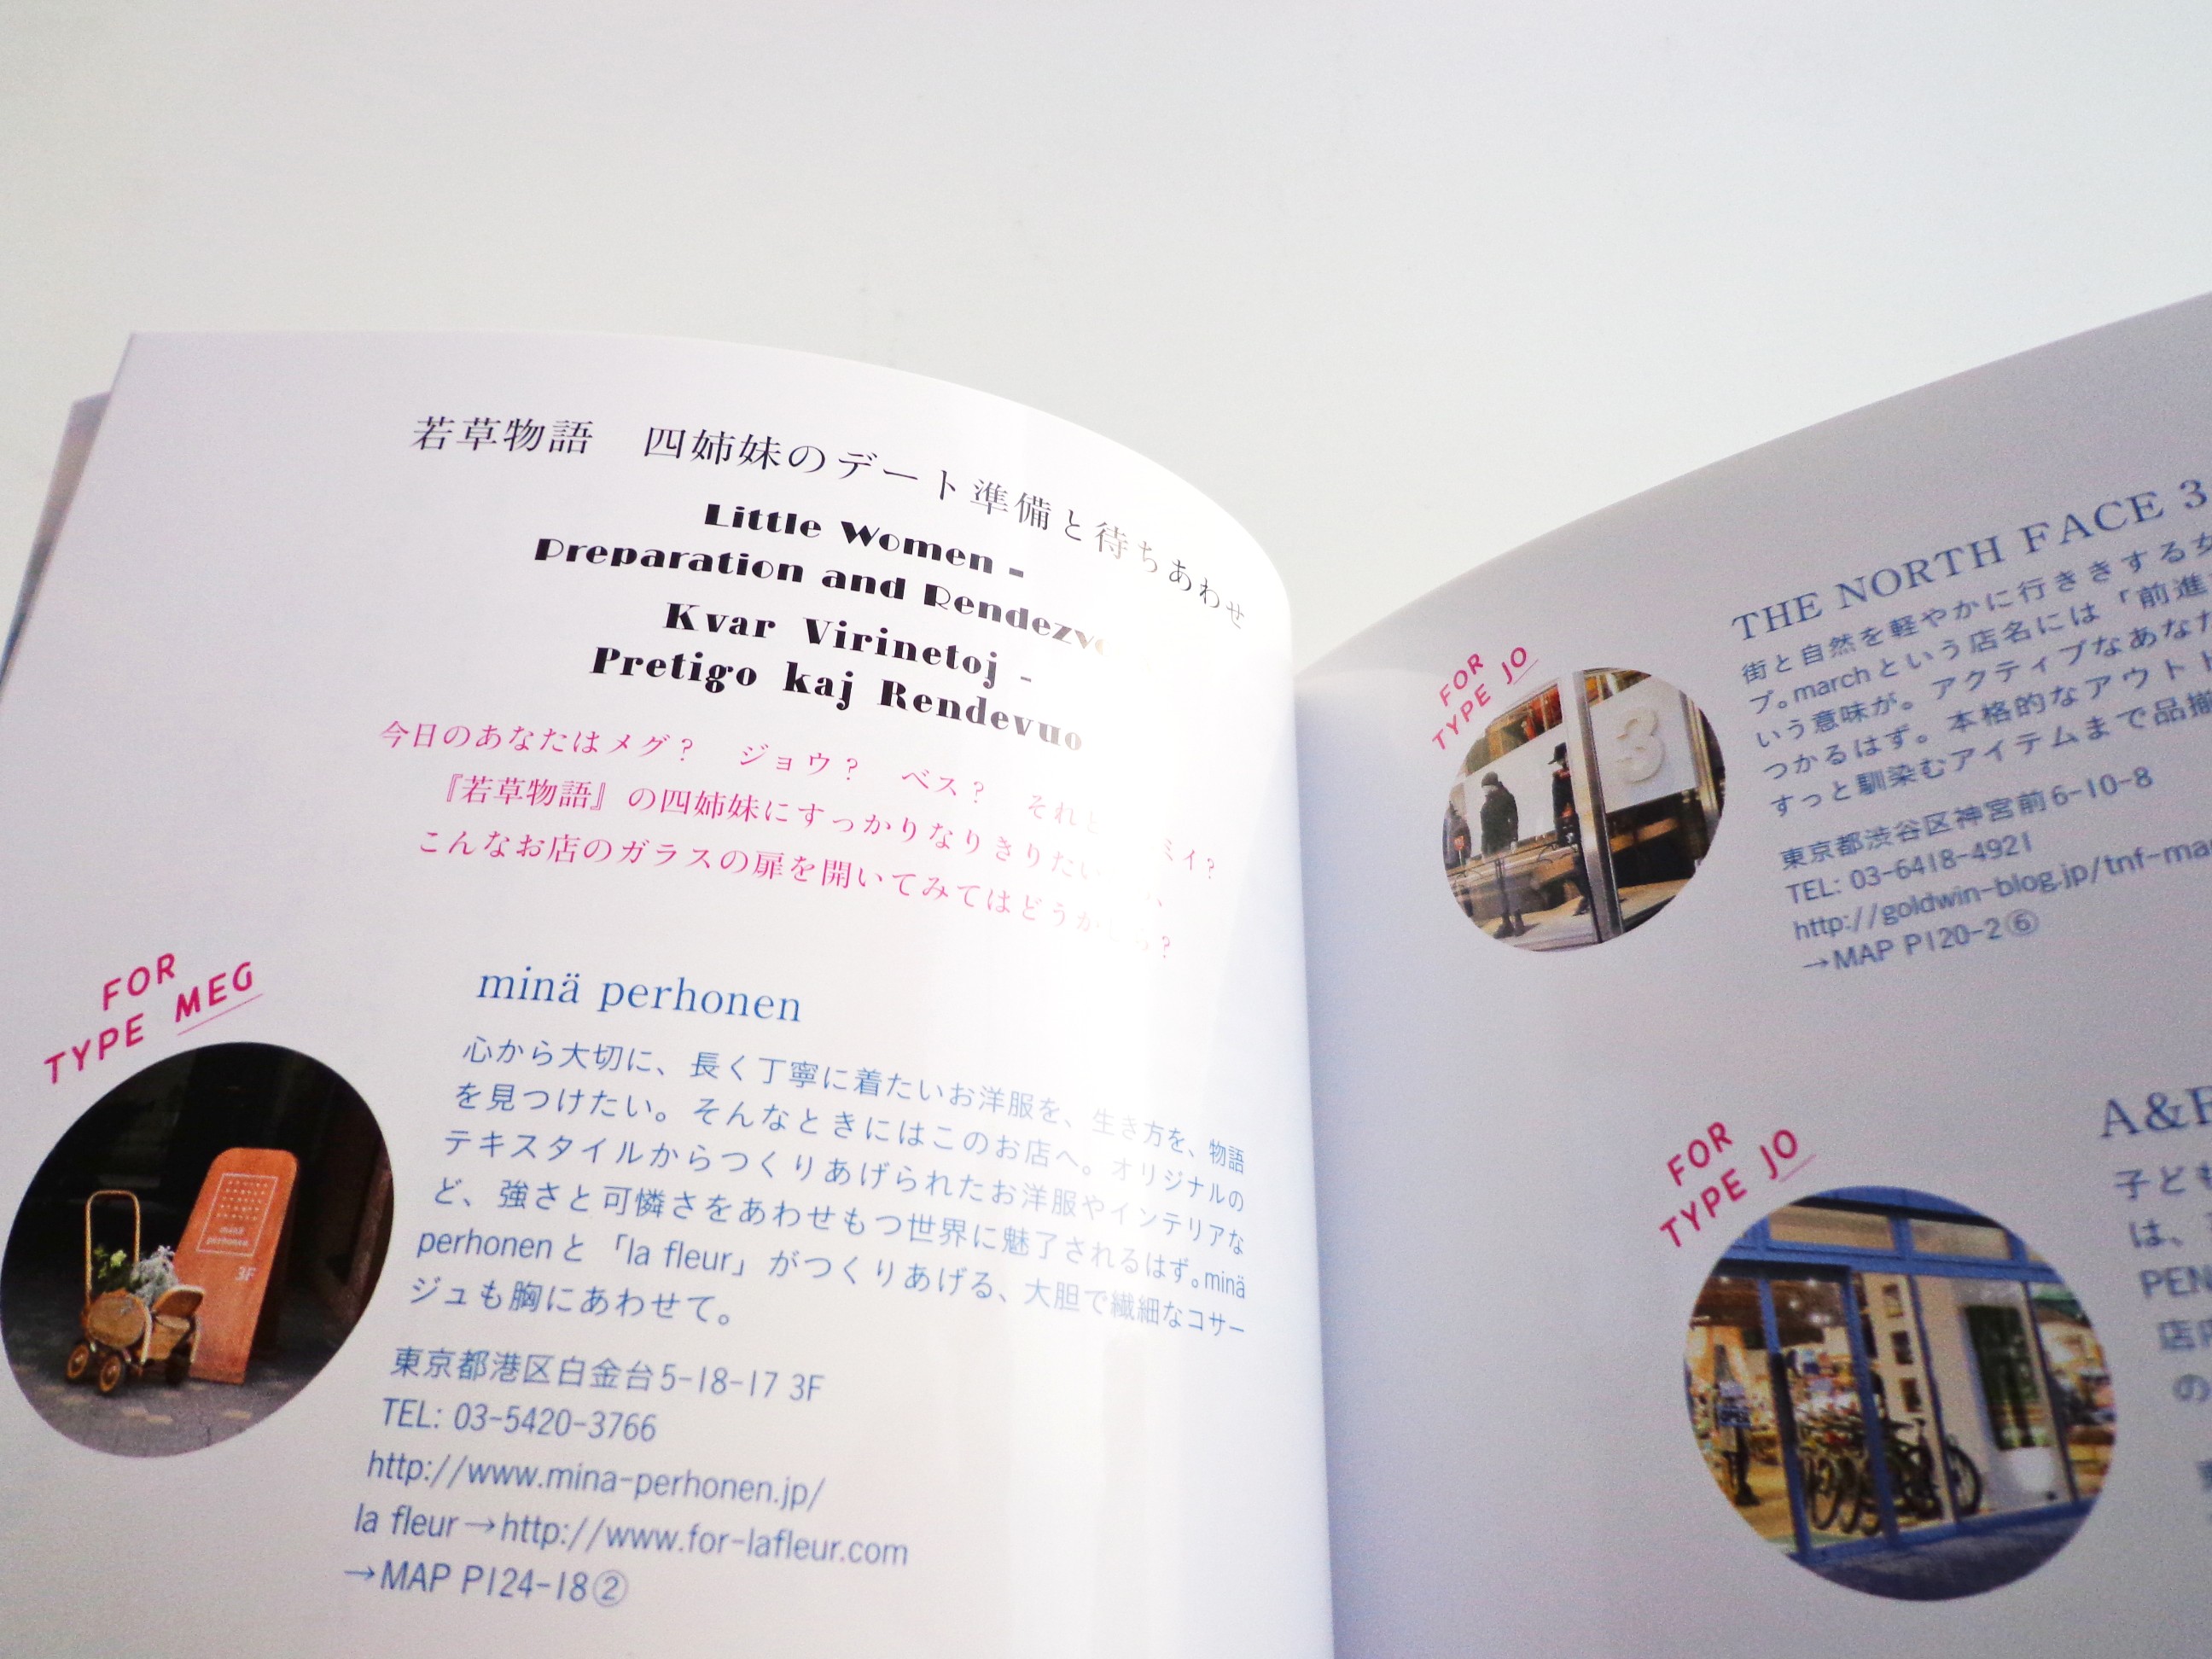 若草物語 四姉妹のデート準備と待ちあわせ
Little Women -
Preparation and
Kvar Virinetoj -
Pretigo kaj Rendevuo
今日のあなたはメグ? ジョウ? ベス?
『若草物語』の四姉妹にすっかりなりきりたい
こんなお店のガラスの扉を開いてみてはどうかしら?
FOR
TYPE MEG
minä perhonen
3F
minä perhonen
心から大切に、長く丁寧に着たいお洋服を、生き方を、物語
を見つけたい。そんなときにはこのお店へ。オリジナルの
テキスタイルからつくりあげられたお洋服やインテリアな
ど、強さと可憐さをあわせもつ世界に魅了されるはず。minä
perhonenと「la fleur」がつくりあげる、大胆で繊細なコサー
ジュも胸にあわせて。
東京都港区白金台5-18-17 3F
TEL: 03-5420-3766
http://www.mina-perhonen.jp/
la fleur→http://www.for-lafleur.com
→MAP P124-18②
FOR
TYPE JO
3
THE NORTH FACE 3
街と自然を軽やかに行ききする女
プ。marchという店名には「前進
いう意味が。アクティブなあなた
つかるはず。本格的なアウト
すっと馴染むアイテムまで品揃
東京都渋谷区神宮前6-10-8
TEL: 03-6418-4921
http://goldwin-blog.jp/tnf-ma
→MAP P120-2⑥
FOR
TYPE JO
A&F
子ども
は、
PEN
店
の